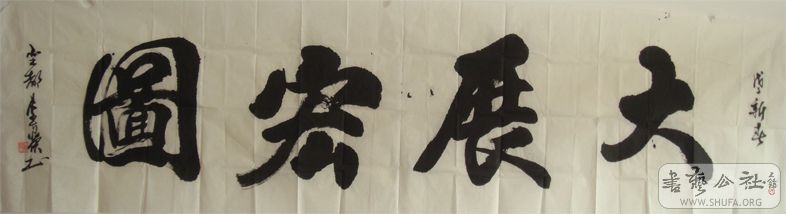 新春
大展宏圖
書藝公社
WWW.SHUFA.ORG